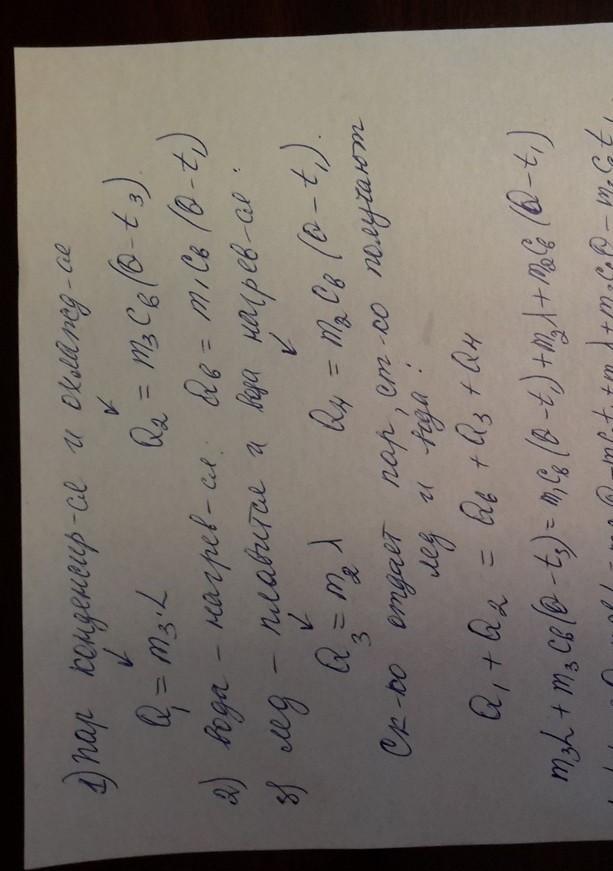 1) пар конденсир-ся и охлажд-ся
Q₁ = m₃L Q₂ = m₃Cв(Θ-t₃)
2) вода - нагрев-ся: Qв = m₁Cв(Θ-t₁)
3) лёд - плавится и вода нагрев-ся:
Q₃ = m₂λ Q₄ = m₂Cв(Θ-t₁).
Ск-ко отдает пар, ст-ко получают
лёд и вода:
Q₁ + Q₂ = Qв + Q₃ + Q₄
m₃L + m₃Cв(Θ-t₃) = m₁Cв(Θ-t₁) + m₂λ + m₂Cв(Θ-t₁)